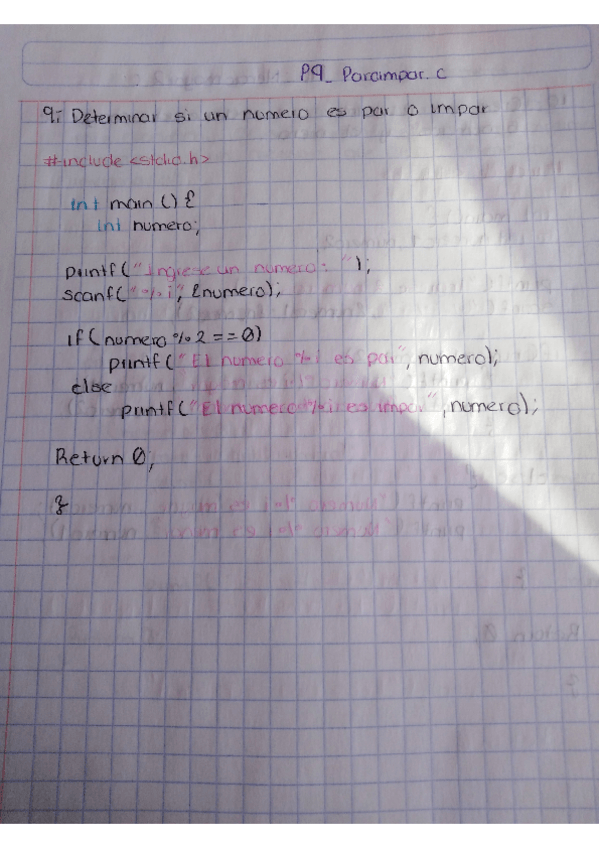 P9_ Paroimpar.c
9: Determinar si un numero es par o impar
#include <stdio.h>
int main () {
int numero;
printf("Ingrese un numero: ");
scanf("%i", &numero);
if(numero % 2 == 0)
printf("El numero %i es par", numero);
else
printf("El numero %i es impar", numero);
Return 0;
}